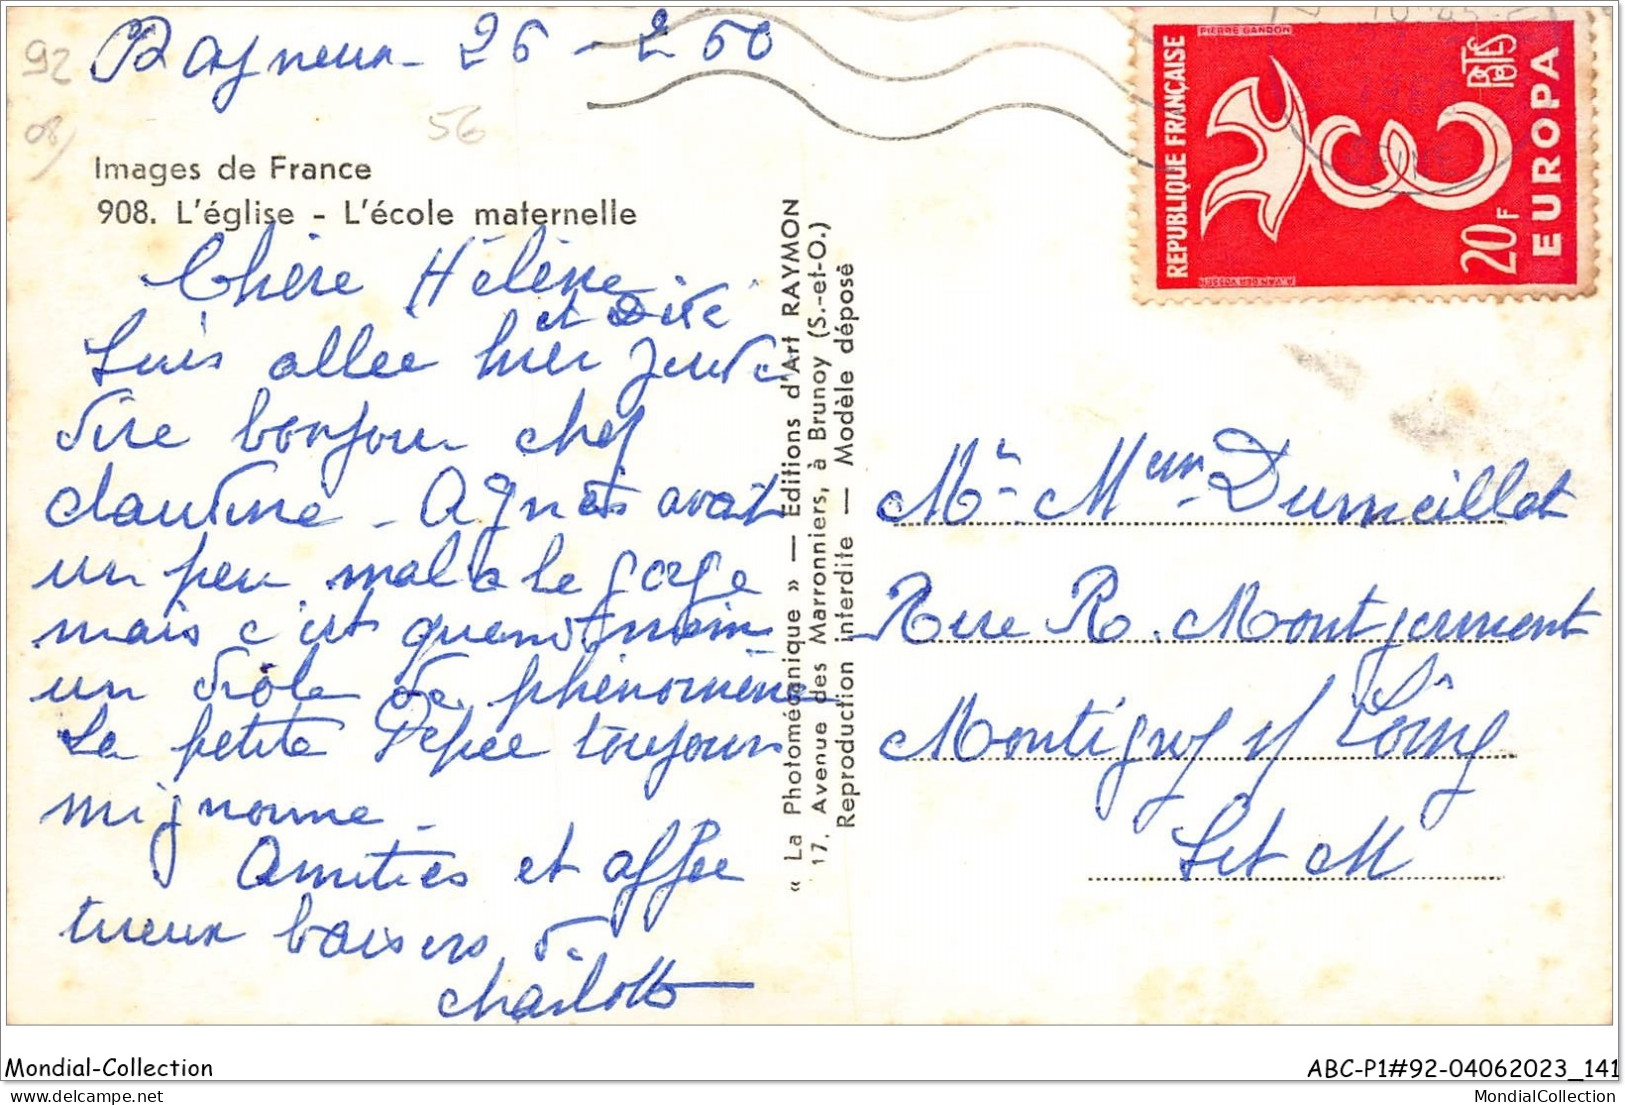 92
08)
Bagneux - 26 - 2 60
56
Images de France
908. L'église - L'école maternelle
Chère Hélène
et Dédé
Suis allée hier jeudi
dire bonjour chez
Claudine - Agnès avait
un peu mal à la gorge
mais c'est quand même
un drôle de phénomène
La petite Pépée toujours
mignonne -
Amitiés et affec
tueux baisers de
Charlotte
« La Photomécanique » — Editions d'Art RAYMON
17, Avenue des Marronniers, à Brunoy (S.-et-O.)
Reproduction interdite — Modèle déposé
REPUBLIQUE FRANÇAISE
PIERRE GANDON
A. VAN DER VOSSEN
POSTES
20F
EUROPA
Mr Mme Dumeillet
Rue R. Montgermont
Montigny s/ Loing
S et M
Mondial-Collection
ABC-P1#92-04062023_141
MondialCollection
MondialCollection